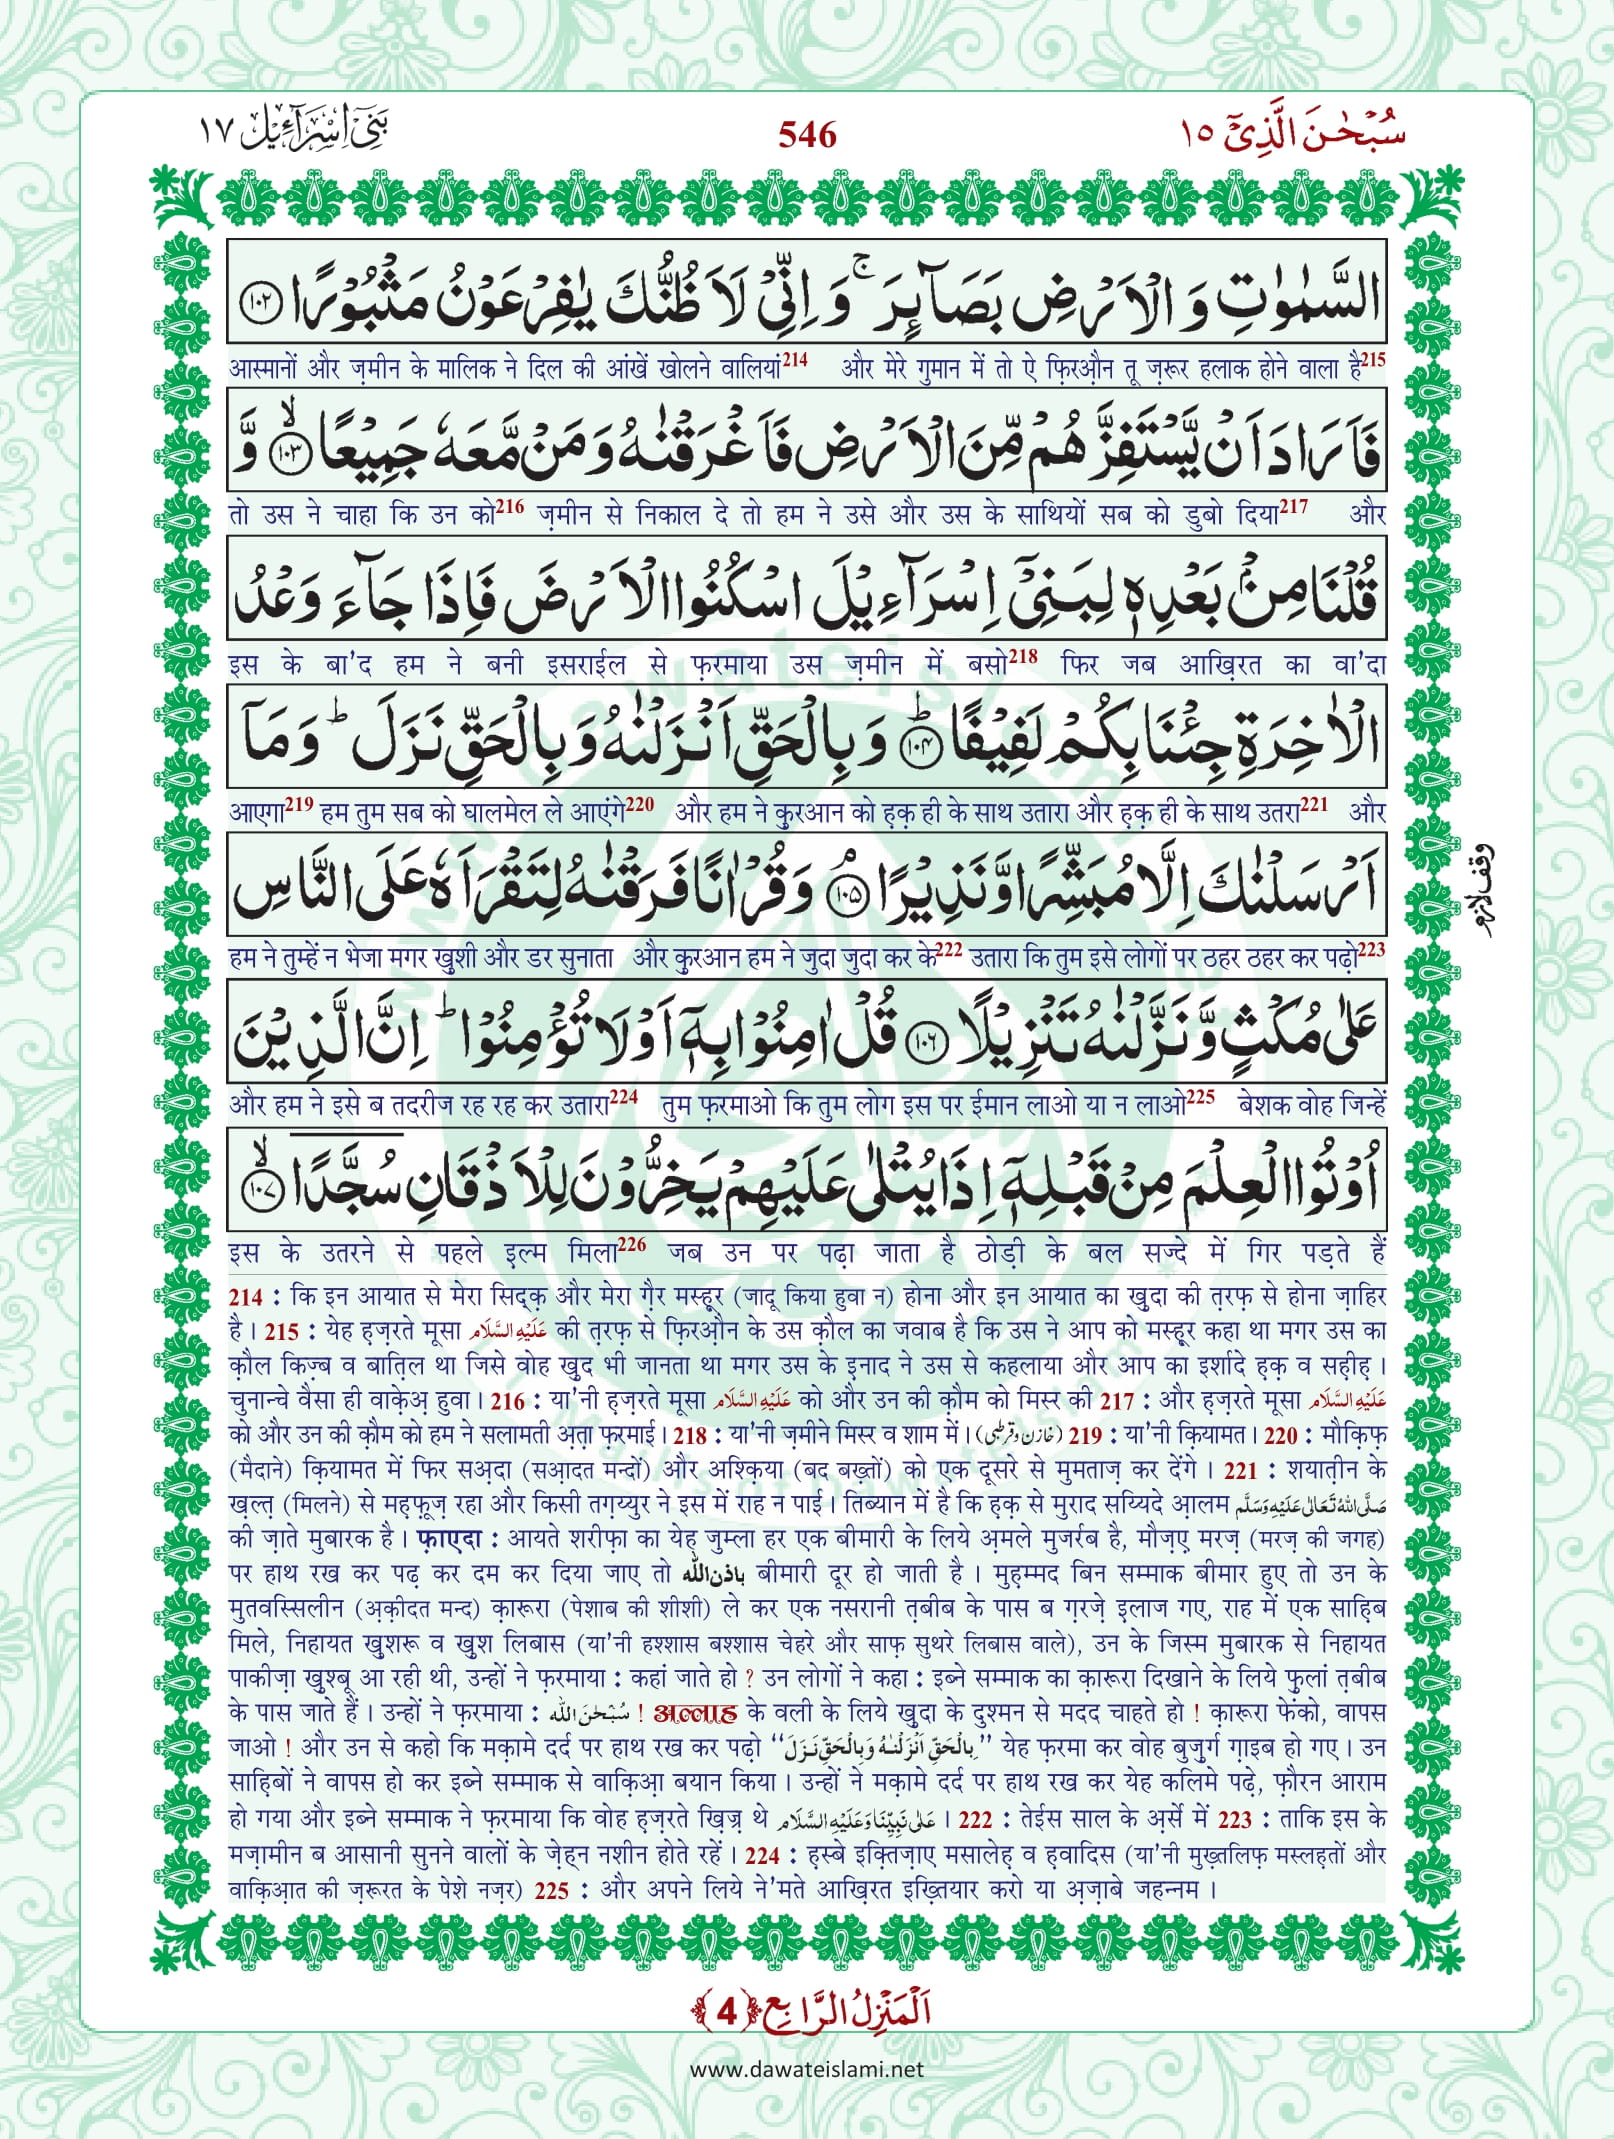 سُبْحٰنَ الَّذِیْۤ ١٥ 546 بَنِیْۤ اِسْرَآءِیْل ١٧
السَّمٰوٰتِ وَ الْاَرْضِ بَصَآىِٕرَ ۚ وَ اِنِّیْ لَاَظُنُّكَ یٰفِرْعَوْنُ مَثْبُوْرًا ﴿۱۰۲﴾
आस्मानों और ज़मीन के मालिक ने दिल की आंखें खोलने वालियां214 और मेरे गुमान में तो ऐ फ़िरऔ़न तू ज़रूर हलाक होने वाला है215
فَاَرَادَ اَنْ یَّسْتَفِزَّهُمْ مِّنَ الْاَرْضِ فَاَغْرَقْنٰهُ وَ مَنْ مَّعَهٗ جَمِیْعًا ﴿۱۰۳﴾ۙ وَّ
तो उस ने चाहा कि उन को216 ज़मीन से निकाल दे तो हम ने उसे और उस के साथियों सब को डुबो दिया217 और
قُلْنَا مِنْۢ بَعْدِهٖ لِبَنِیْۤ اِسْرَآءِیْلَ اسْكُنُوا الْاَرْضَ فَاِذَا جَآءَ وَعْدُ
इस के बा'द हम ने बनी इसराईल से फ़रमाया उस ज़मीन में बसो218 फिर जब आख़िरत का वा'दा
الْاٰخِرَةِ جِئْنَا بِكُمْ لَفِیْفًا ﴿۱۰۴﴾ؕ وَ بِالْحَقِّ اَنْزَلْنٰهُ وَ بِالْحَقِّ نَزَلَ ؕ وَ مَاۤ
आएगा219 हम तुम सब को घालमेल ले आएंगे220 और हम ने क़ुरआन को ह़क़ ही के साथ उतारा और ह़क़ ही के साथ उतरा221 और
اَرْسَلْنٰكَ اِلَّا مُبَشِّرًا وَّ نَذِیْرًا ﴿۱۰۵﴾ۘ وَ قُرْاٰنًا فَرَقْنٰهُ لِتَقْرَاَهٗ عَلَى النَّاسِ
وقف لازم
हम ने तुम्हें न भेजा मगर ख़ुशी और डर सुनाता और क़ुरआन हम ने जुदा जुदा कर के222 उतारा कि तुम इसे लोगों पर ठहर ठहर कर पढ़ो223
عَلٰى مُكْثٍ وَّ نَزَّلْنٰهُ تَنْزِیْلًا ﴿۱۰۶﴾ قُلْ اٰمِنُوْا بِهٖۤ اَوْ لَا تُؤْمِنُوْا ؕ اِنَّ الَّذِیْنَ
और हम ने इसे ब तदरीज रह रह कर उतारा224 तुम फ़रमाओ कि तुम लोग इस पर ईमान लाओ या न लाओ225 बेशक वोह जिन्हें
اُوْتُوا الْعِلْمَ مِنْ قَبْلِهٖۤ اِذَا یُتْلٰى عَلَیْهِمْ یَخِرُّوْنَ لِلْاَذْقَانِ سُجَّدًا ﴿۱۰۷﴾ۙ
इस के उतरने से पहले इल्म मिला226 जब उन पर पढ़ा जाता है ठोड़ी के बल सज्दे में गिर पड़ते हैं
214 : कि इन आयात से मेरा सिद्क़ और मेरा ग़ैर मस्ह़ूर (जादू किया हुवा न) होना और इन आयात का ख़ुदा की त़रफ़ से होना ज़ाहिर
है। 215 : येह ह़ज़रते मूसा عَلَيْهِ السَّلَام की त़रफ़ से फ़िरऔ़न के उस क़ौल का जवाब है कि उस ने आप को मस्ह़ूर कहा था मगर उस का
क़ौल किज़्ब व बात़िल था जिसे वोह ख़ुद भी जानता था मगर उस के इ़नाद ने उस से कहलाया और आप का इर्शादे ह़क़ व सह़ीह़।
चुनान्चे वैसा ही वाक़ेअ़ हुवा। 216 : या'नी ह़ज़रते मूसा عَلَيْهِ السَّلَام को और उन की क़ौम को मिस्र की 217 : और ह़ज़रते मूसा عَلَيْهِ السَّلَام
को और उन की क़ौम को हम ने सलामती अ़त़ा फ़रमाई। 218 : या'नी ज़मीने मिस्र व शाम में। (خازن وقرطبی) 219 : या'नी क़ियामत। 220 : मौक़िफ़
(मैदाने) क़ियामत में फिर सअ़दा (सआ़दत मन्दों) और अश्क़िया (बद बख़्तों) को एक दूसरे से मुमताज़ कर देंगे। 221 : शयात़ीन के
ख़ल्त़ (मिलने) से मह़फ़ूज़ रहा और किसी तग़य्युर ने इस में राह न पाई। तिब्यान में है कि ह़क़ से मुराद सय्यिदे आ़लम صَلَّى اللهُ تَعَالٰى عَلَيْهِ وَسَلَّم
की ज़ाते मुबारक है। फ़ाएदा : आयते शरीफ़ा का येह जुम्ला हर एक बीमारी के लिये अ़मले मुजर्रब है, मौज़ए़ मरज़ (मरज़ की जगह)
पर हाथ रख कर पढ़ कर दम कर दिया जाए तो باذن الله बीमारी दूर हो जाती है। मुह़म्मद बिन सम्माक बीमार हुए तो उन के
मुतवस्सिलीन (अ़क़ीदत मन्द) क़ारूरा (पेशाब की शीशी) ले कर एक नसरानी त़बीब के पास ब ग़रज़े इ़लाज गए, राह में एक साह़िब
मिले, निहायत ख़ुशरू व ख़ुश लिबास (या'नी हश्शास बश्शास चेहरे और साफ़ सुथरे लिबास वाले), उन के जिस्म मुबारक से निहायत
पाकीज़ा ख़ुश्बू आ रही थी, उन्हों ने फ़रमाया : कहां जाते हो ? उन लोगों ने कहा : इब्ने सम्माक का क़ारूरा दिखाने के लिये फ़ुलां त़बीब
के पास जाते हैं। उन्हों ने फ़रमाया : سُبْحٰنَ الله ! अल्लाह के वली के लिये ख़ुदा के दुश्मन से मदद चाहते हो ! क़ारूरा फेंको, वापस
जाओ ! और उन से कहो कि मक़ामे दर्द पर हाथ रख कर पढ़ो "بِالْحَقِّ اَنْزَلْنٰهُ وَبِالْحَقِّ نَزَلَ" येह फ़रमा कर वोह बुज़ुर्ग ग़ाइब हो गए। उन
साह़िबों ने वापस हो कर इब्ने सम्माक से वाक़िआ़ बयान किया। उन्हों ने मक़ामे दर्द पर हाथ रख कर येह कलिमे पढ़े, फ़ौरन आराम
हो गया और इब्ने सम्माक ने फ़रमाया कि वोह ह़ज़रते ख़िज़्र थे عَلٰى نَبِيِّنَا وَعَلَيْهِ السَّلَام। 222 : तेईस साल के अ़र्से में 223 : ताकि इस के
मज़ामीन ब आसानी सुनने वालों के ज़ेह्न नशीन होते रहें। 224 : ह़स्बे इक़्तिज़ाए मसालेह़ व ह़वादिस (या'नी मुख़्तलिफ़ मस्लह़तों और
वाक़िआ़त की ज़रूरत के पेशे नज़र) 225 : और अपने लिये ने'मते आख़िरत इख़्तियार करो या अ़ज़ाबे जहन्नम।
اَلْمَنْزِلُ الرَّابِع ﴿4﴾
www.dawateislami.net